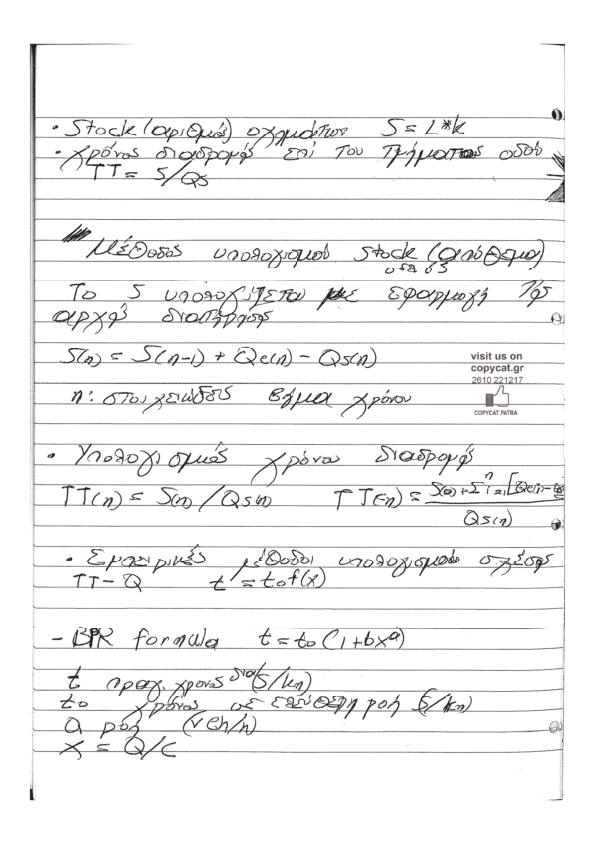 • Stock (αριθμός) οχημάτων S = L*k
• χρόνος διαδρομής επί του τμήματος οδού
TT = S/Qs
Μέθοδος υπολογισμού Stock (απόθεμα)
Το S υπολογίζεται με εφαρμογή της
αρχής διατήρησης
S(n) = S(n-1) + Qe(n) - Qs(n)
visit us on
copycat.gr
2610 221217
COPYCAT PATRA
n: στοιχειώδες βήμα χρόνου
• Υπολογισμός χρόνου διαδρομής
TT(n) = S(n) / Qs(n) TT(n) = S(0) + Σ n i=1 [Qe(n-
Qs(n)
• Εμπειρικές μέθοδοι υπολογισμού σχέσης
TT-Q t = tof(x)
- BPR formula t = to (1+bxᵃ)
t πραγ. χρόνος δια (s/km)
to χρόνος σε ελεύθερη ροή (s/km)
Q ροή (veh/h)
x = Q/C